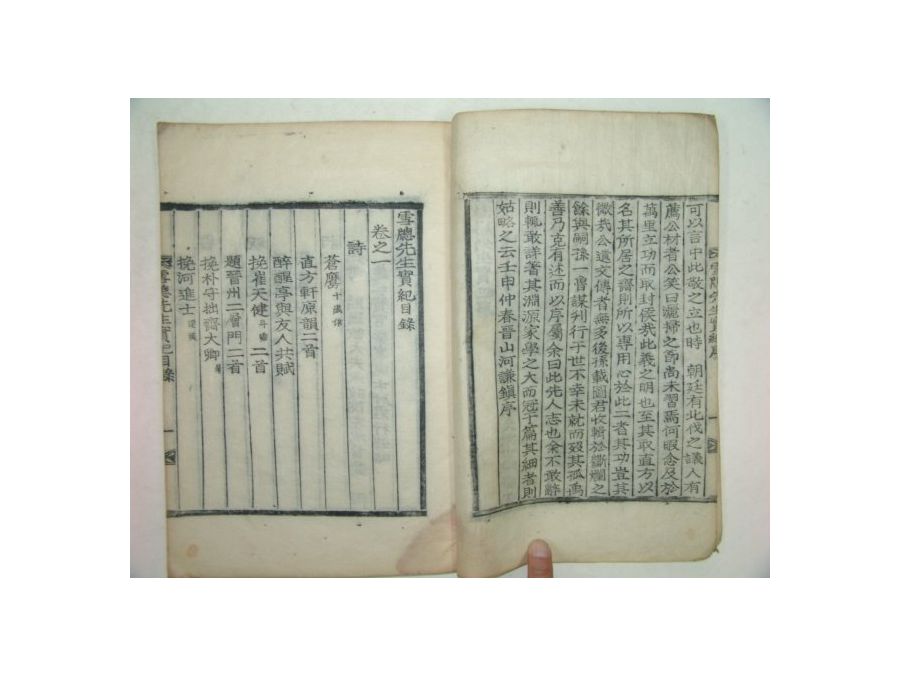 可以言中此敬之立也時 朝廷有北伐之議人有
薦公材者公笑曰灑掃之節尚未習焉何暇念及於
萬里立功而取封侯我此義之明也至其取直方以
名其所居之齋則所以專用心於此二者其功豈其
微哉公遺文傳者無多後孫載圖君收輯於斷爛之
餘與嗣孫一 謀刊行于世不幸未就而歿其孤禹
善乃克有述而以序屬余曰此先人志也余不敢辭
則輒敢詳著其淵源家學之大而冠于篇其細者則
姑略之云壬申仲春晉山河謙鎭序
雪牕先生實紀目錄
卷之一
詩
蒼鷹 十歲作
直方軒原韻二首
醉醒亭與友人共賦
挽崔天健 二首
題晉州二層門二首
挽朴守拙齋大卿
挽河進士
先生實紀目錄 一